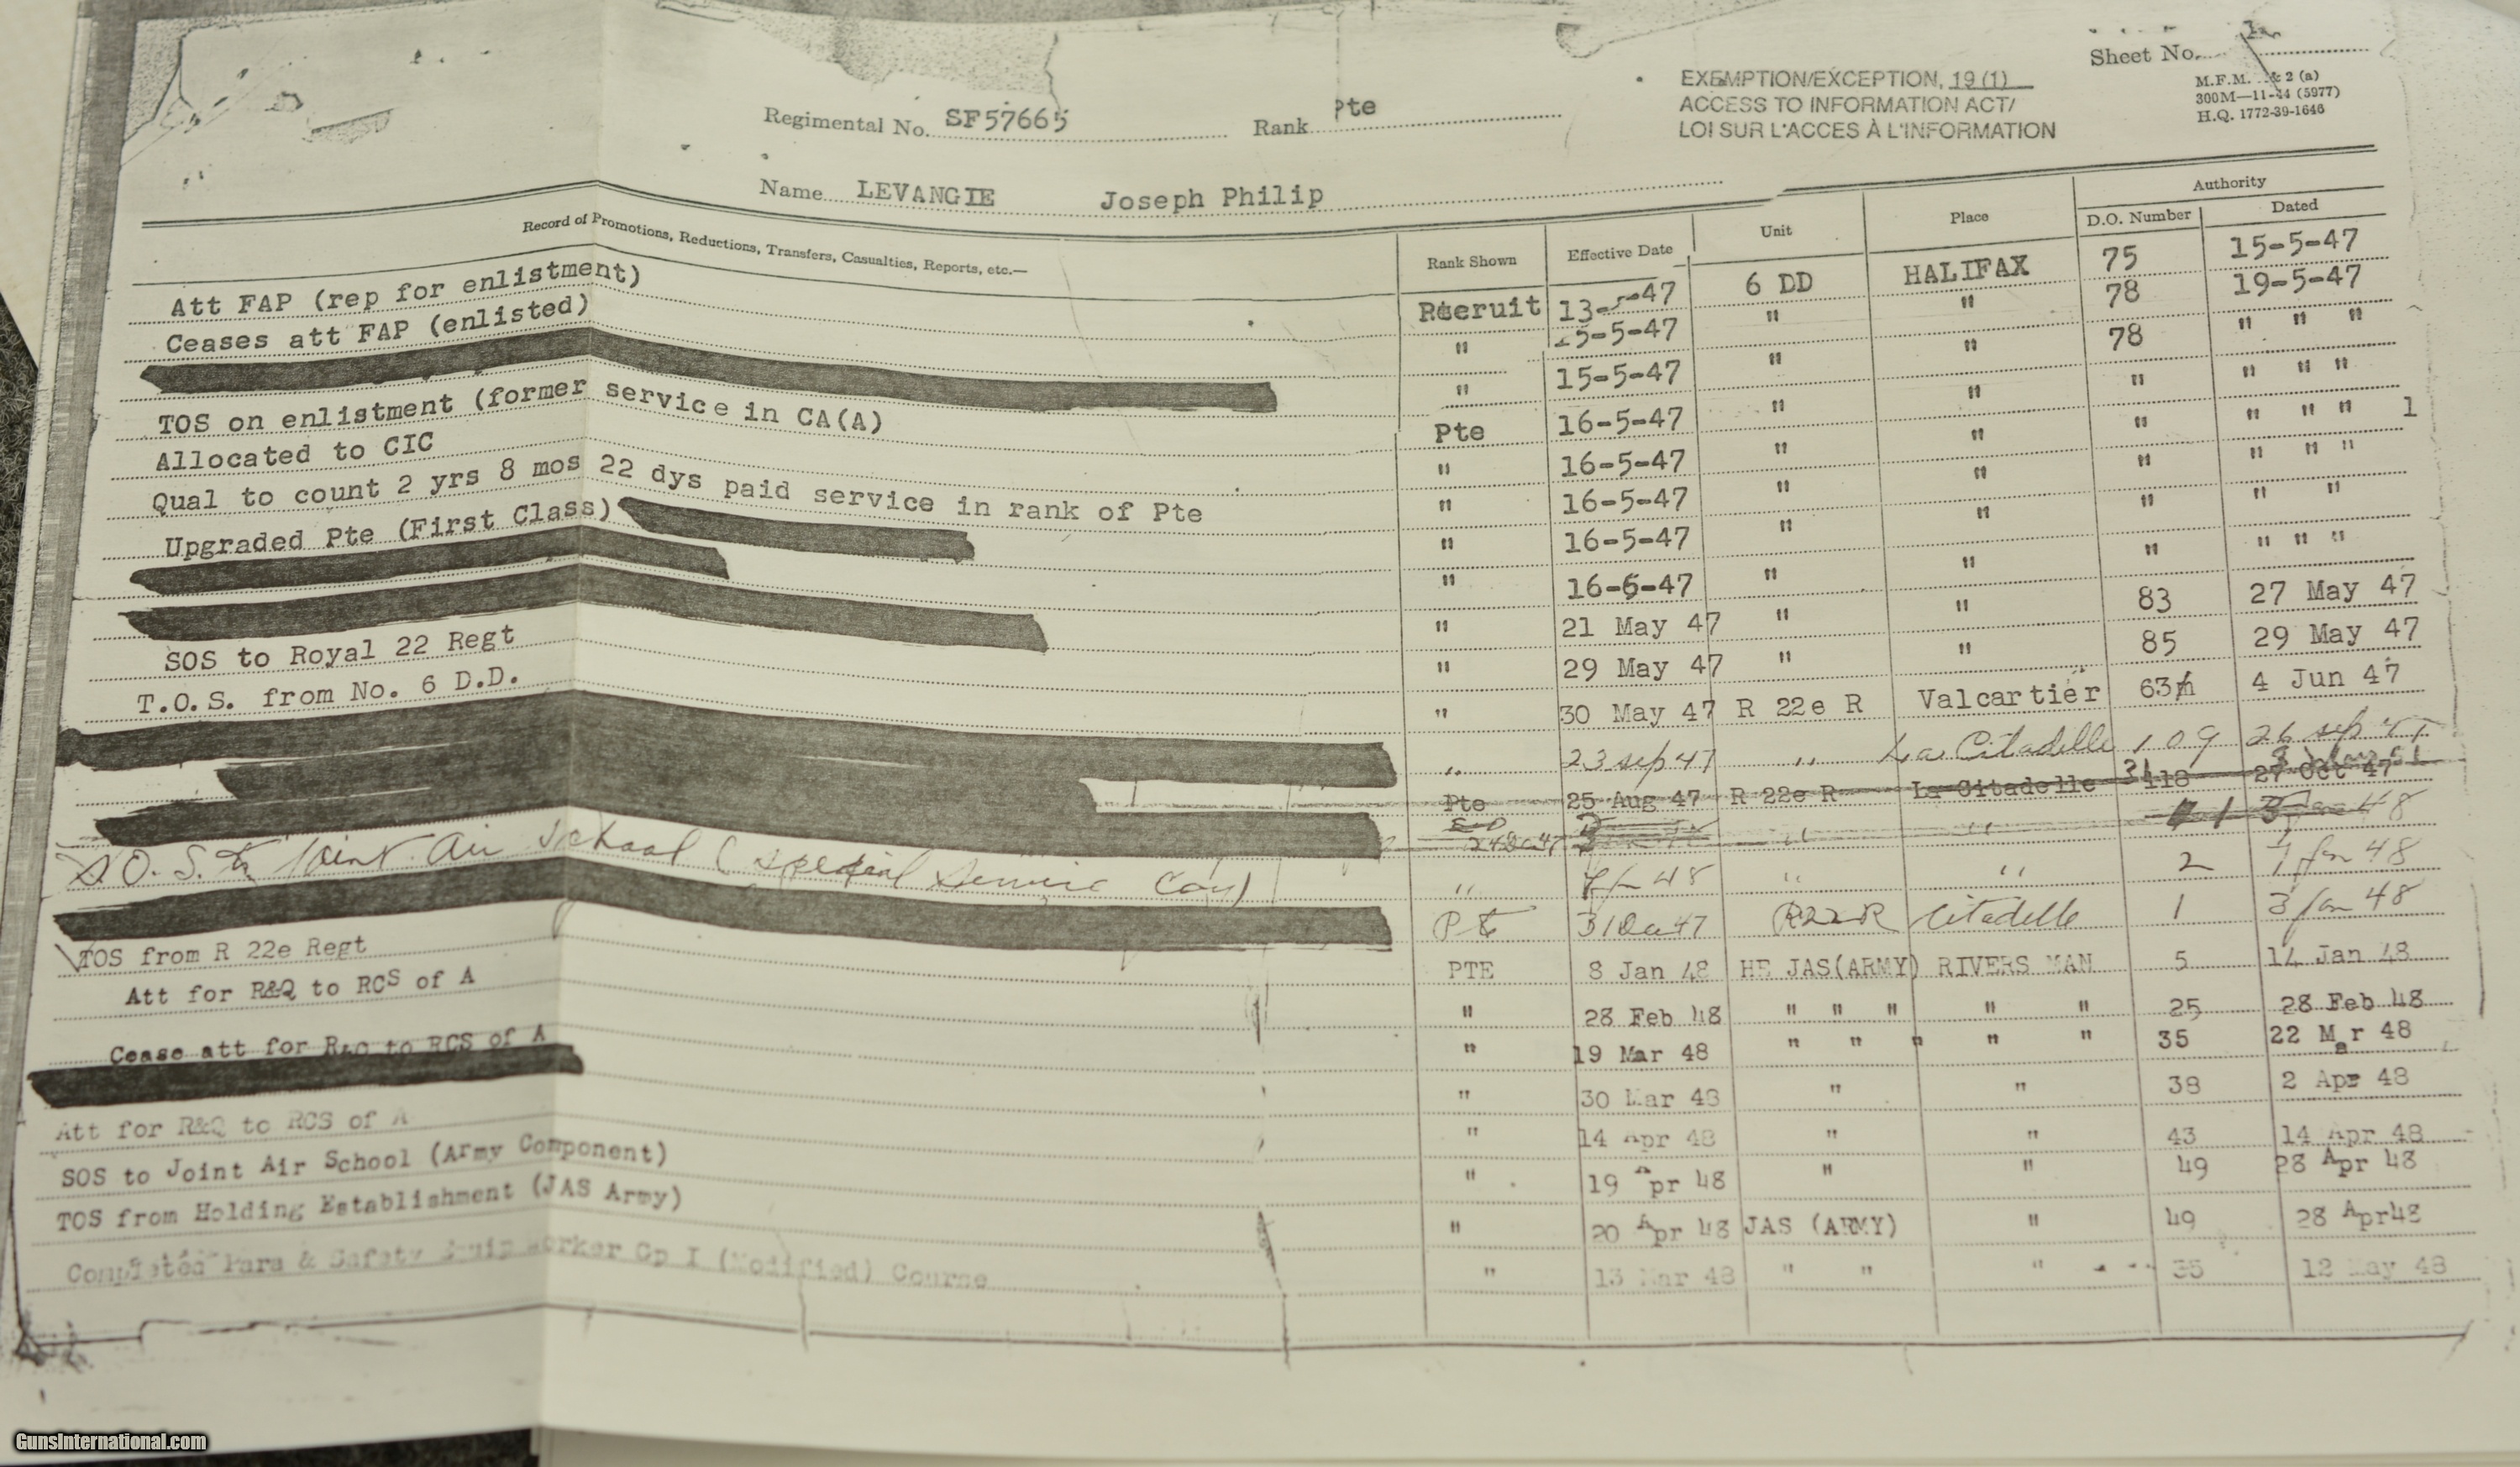 Sheet No.
M.F.M. & 2 (a)
300M—11-44 (5977)
H.Q. 1772-39-1646
EXEMPTION/EXCEPTION, 19 (1)
ACCESS TO INFORMATION ACT/
LOI SUR L'ACCES À L'INFORMATION
Regimental No. SF57665 Rank Pte
Name LEVANGIE Joseph Philip
Authority
Record of Promotions, Reductions, Transfers, Casualties, Reports, etc.— Rank Shown Effective Date Unit Place D.O. Number Dated
Att FAP (rep for enlistment) Recruit 13-5-47 6 DD HALIFAX 75 15-5-47
Ceases att FAP (enlisted) " 15-5-47 " " 78 19-5-47
" 15-5-47 " " 78 " " "
TOS on enlistment (former service in CA(A) Pte 16-5-47 " " " " " "
Allocated to CIC " 16-5-47 " " " " " " 1
Qual to count 2 yrs 8 mos 22 dys paid service in rank of Pte " 16-5-47 " " " " " "
Upgraded Pte (First Class) " 16-5-47 " " " " "
" 16-6-47 " " " " " "
" 21 May 47 " " 83 27 May 47
SOS to Royal 22 Regt " 29 May 47 " " 85 29 May 47
T.O.S. from No. 6 D.D. " 30 May 47 R 22e R Valcartier 63 4 Jun 47
" 23 sep 47 " La Citadelle 109 26 sep 47
Pte 25 Aug 47 R 22e R La Citadelle 118 27 Oct 47
" " 1 48
S.O.S. to Joint Air School (Special Service Coy) " 48 " " 2 Jan 48
Pte 31 47 R22R Citadelle 1 3 Jan 48
TOS from R 22e Regt PTE 8 Jan 48 HE JAS(ARMY) RIVERS MAN 5 14 Jan 48
Att for R&Q to RCS of A " 28 Feb 48 " " " " " 25 28 Feb 48
Cease att for R&Q to RCS of A " 19 Mar 48 " " " " " 35 22 Mar 48
" 30 Mar 48 " " 38 2 Apr 48
Att for R&Q to RCS of A " 14 Apr 48 " " 43 14 Apr 48
SOS to Joint Air School (Army Component) " 19 Apr 48 " " 49 28 Apr 48
TOS from Holding Establishment (JAS Army) " 20 Apr 48 JAS (ARMY) " 49 28 Apr48
Completed Para & Safety Equip Worker Gp I (Modified) Course " 13 Mar 48 " " " 35 12 May 48
GunsInternational.com